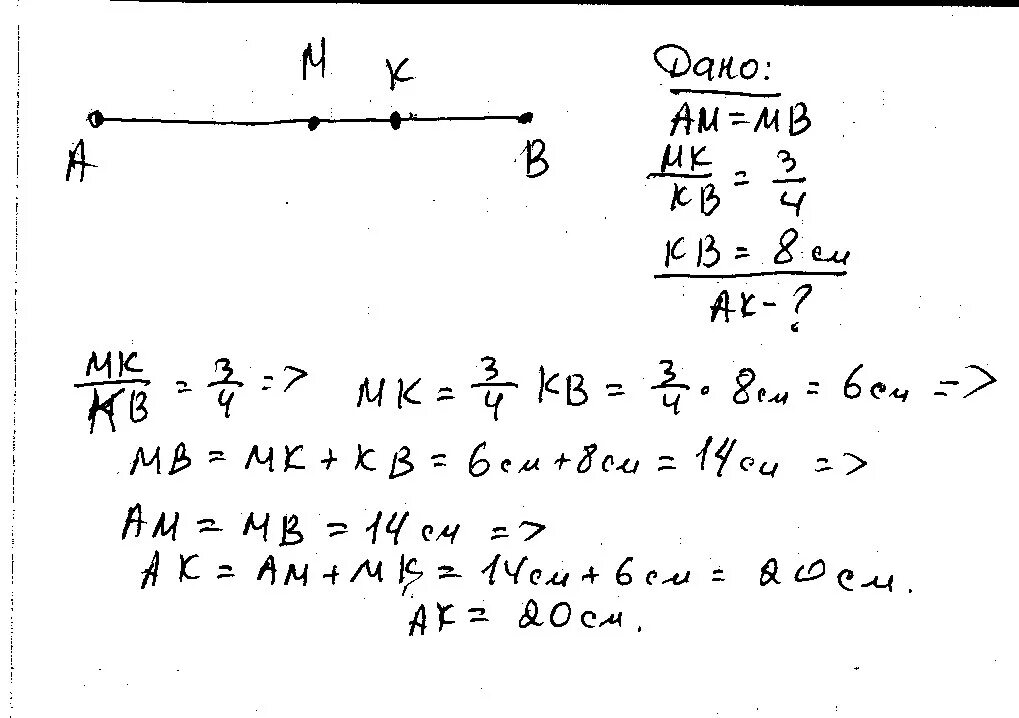 M K
A B
Дано:
AM = MB
MK/KB = 3/4
KB = 8 см
AK - ?
MK/KB = 3/4 => MK = 3/4 KB = 3/4 · 8 см = 6 см =>
MB = MK + KB = 6 см + 8 см = 14 см =>
AM = MB = 14 см =>
AK = AM + MK = 14 см + 6 см = 20 см.
AK = 20 см.